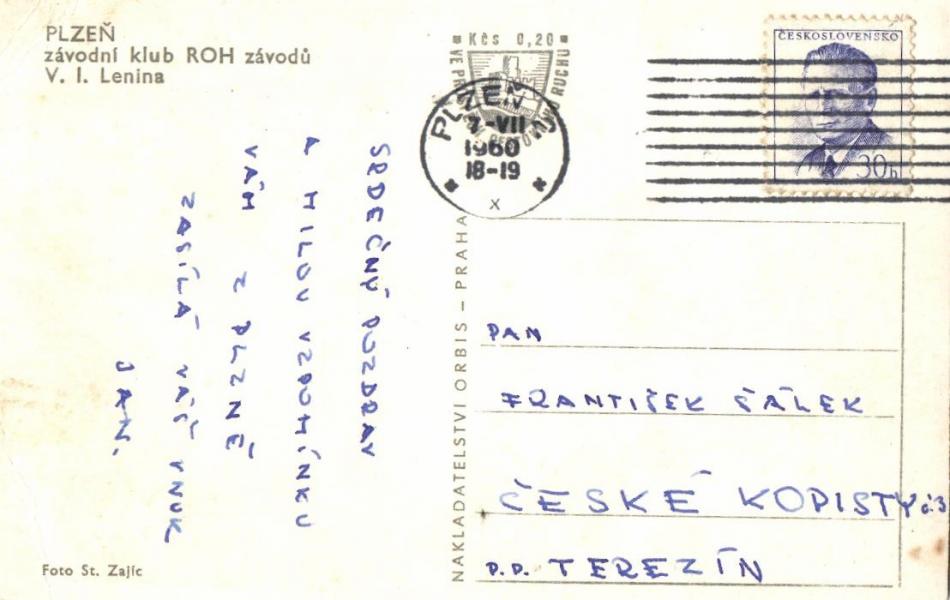 PLZEŇ
závodní klub ROH závodů
V. I. Lenina
SRDEČNÝ POZDRAV
A MILOU VZPOMÍNKU
VÁM Z PLZNĚ
ZASÍLÁ VÁŠ VNUK
JAN.
Foto St. Zajíc
NAKLADATELSTVÍ ORBIS – PRAHA
Kčs 0,20
PLZEŇ
-VII
1960
18-19
x
ČESKOSLOVENSKO
30h
PAN
FRANTIŠEK ŠÁLEK
ČESKÉ KOPISTY č.3
p.p. TEREZÍN